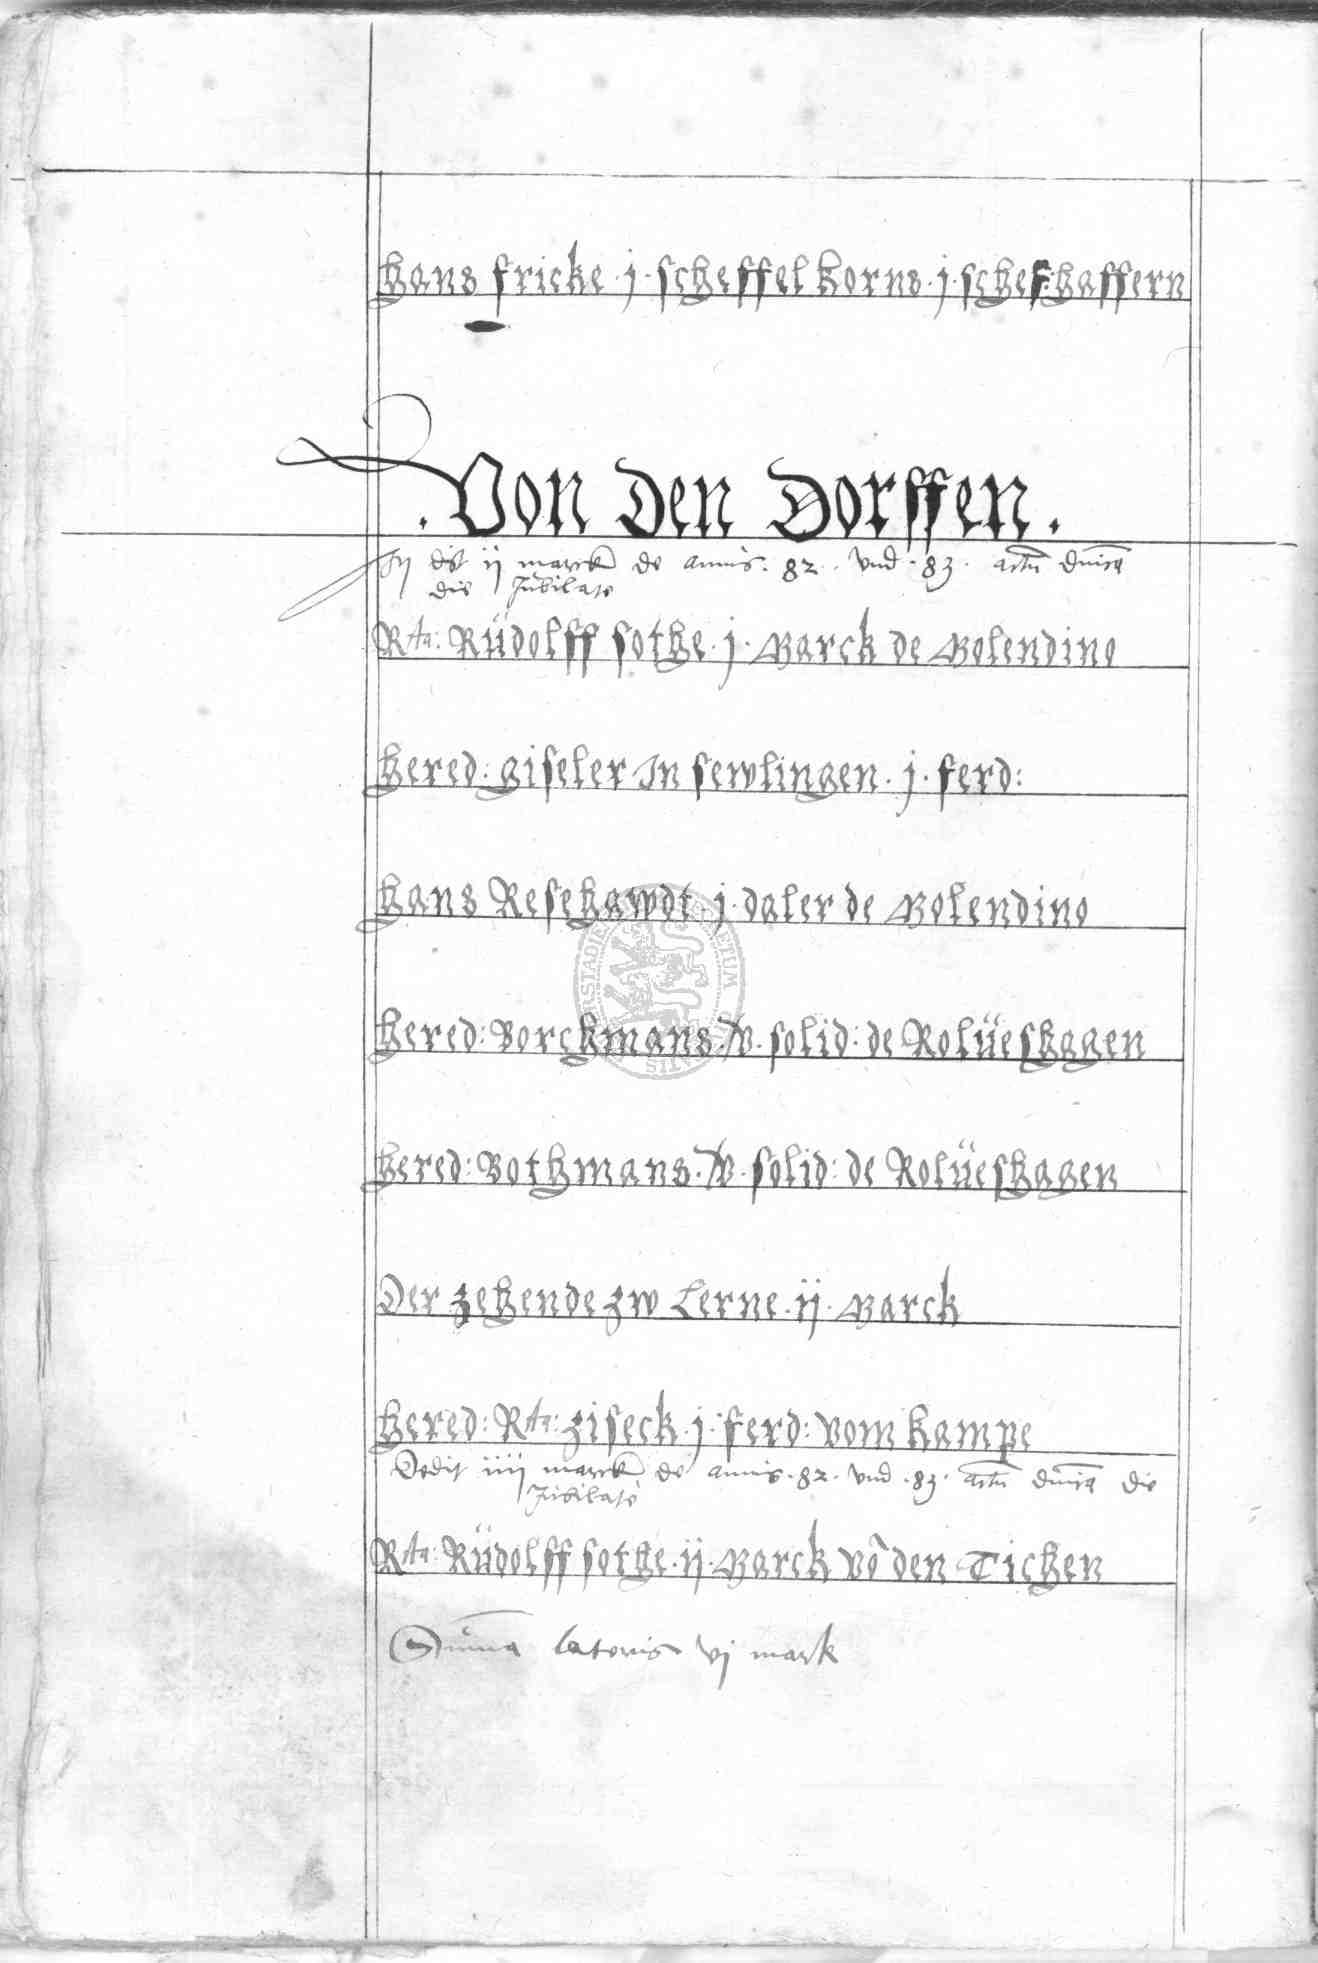 Hans fricke · j · scheffel korns · j · schef: haffern
. Von Den Dorffen .
dt ij marck de annis · 82 · vnd · 83 · actū dnica
die Jubilate
Rta: Rüdolff sothe · j · Marck de Molendino
Hered: giseler In sewlingen · j · ferd:
Hans Resehawdt · j · daler de Molendino
Hered: Borchmans · solid: de Rolüeshagen
Hered: Bothmans · solid: de Rolüeshagen
Der zehende zw Lerne · ij · Marck
Hered: Rta: ziseck · j · ferd: vom kampe
Dedit iiij marck de annis · 82 · vnd · 83 · actū dnica die
Jubilate
Rta: Rüdolff sothe · ij · Marck vō den Tichen
Suma lateris vj mark